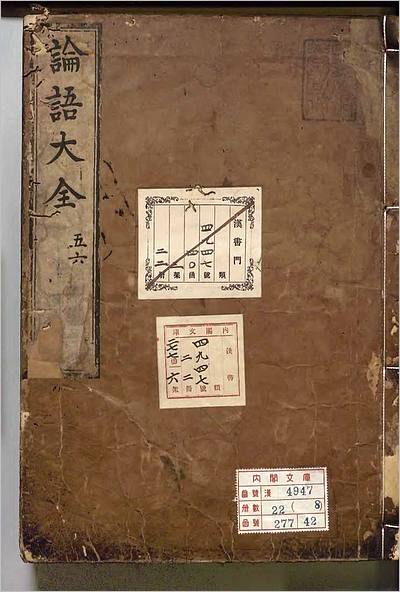 論語大全
五六
漢書門
類
四九四七號
四〇函
架
二二冊
内閣文庫
漢書
四九四七號
二二冊
二七七函
六架
類
内閣文庫
番號 漢 4947
冊數 22 ( 8)
函號 277 42